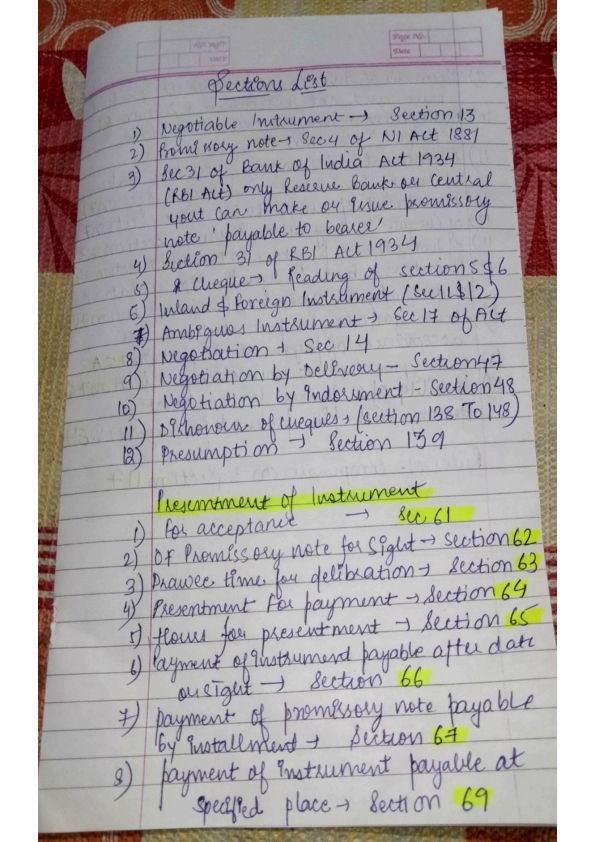 Page No.
Date
Sections List
1) Negotiable Instrument → Section 13
2) Promissory note → Sec 4 of NI Act 1881
3) Sec 31 of Bank of India Act 1934
(RBI Act) only Reserve Bank or Central
govt can make or issue promissory
note 'payable to bearer'
4) Section 31 of RBI Act 1934
5) & Cheque → Reading of section 5 & 6
6) Inland & Foreign Instrument (Sec 11 & 12)
7) Ambiguos Instrument → Sec 17 of Act
8) Negotiation → Sec 14
9) Negotiation by Delivery - Section 47
10) Negotiation by Indorsment - Section 48
11) Dishonour of cheques → (section 138 To 148)
12) Presumption → Section 139
Presentment of Instrument
1) For acceptance → Sec 61
2) OF Promissory note for sight → Section 62
3) Drawee time for delibration → Section 63
4) Presentment For payment → Section 64
5) Hours for presentment → Section 65
6) Payment of instrument payable after date
or sight → Section 66
7) payment of promissory note payable
by installment → Section 67
8) payment of instrument payable at
specified place → Section 69